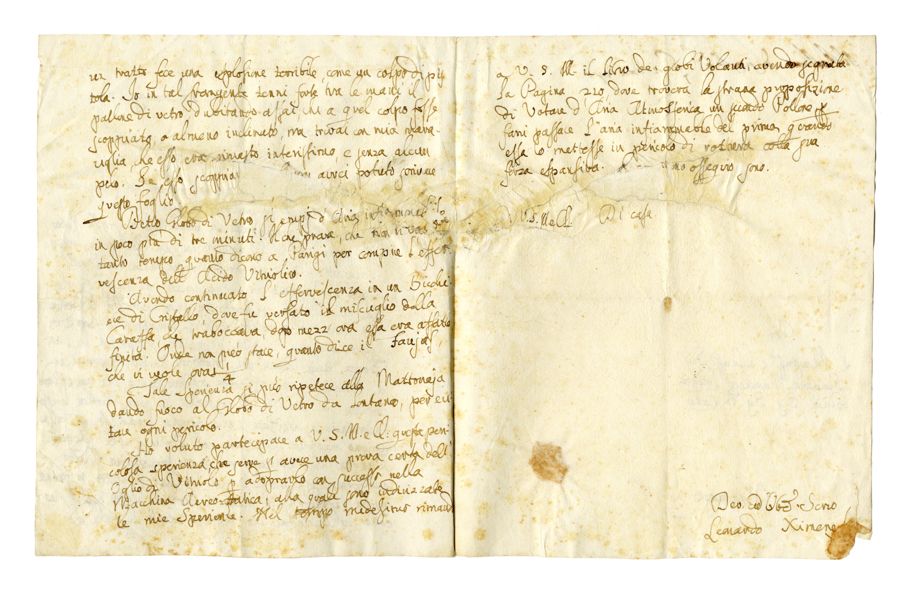 un tratto fece una esplosione terribile, come un colpo di pis
tola. Io in tal frangente tenni forte tra le mani il
pallone di vetro, dubitando assai, che a quel colpo fosse
scoppiato, o almeno incrinato, ma trovai con mia mara-
viglia, che esso era rimasto interissimo, e senza alcun
pelo. Se esso scoppiava avrei potuto scrivere
questo foglio.
Detto Globo di Vetro si empì d'Aria infiammabile
in poco più di tre minuti. Il che prova, che non vi vuol
tanto tempo, quanto dicono a Parigi per compire l'effer-
vescenza dell'Acido Vitriolico.
Avendo continuato l'effervescenza in un Bicchi
ere di Cristallo, dove fu versato il miscuglio dalla
Caraffa, che traboccava dopo mezz'ora essa era affatto
finita. Onde non può stare, quanto dice il Faujas,
che vi vogle oras 4
Tale Sperienza si può ripetere alla Mattonaja
dando fuoco al Globo di Vetro da lontano, per evi
tare ogni pericolo.
Ho voluto partecipare a V. S. M. e Ill: questa peri-
colosa sperienza, che serve p avere una prova certa dell'
Oglio di Vitriolo p adoprarlo con successo nella
Macchina Aereo-statica, alla quale sono indirizzate
le mie Sperienze. Nel tempo medesimo rimando
a V. S. M. il libro de' globi Volanti, avendo segnata
la Pagina 210 dove troverà la strana proposizione
di Votare d'Aria Atmosferica un secondo Pallone p
farvi passare l'aria infiammabile del primo, quando
essa lo mettesse in pericolo di rottura colla sua
forza espansiva. ossequio sono.
V. S. M. e Ill. Di casa
Dev.o ed Obb.o Servo
Leonardo Ximenes